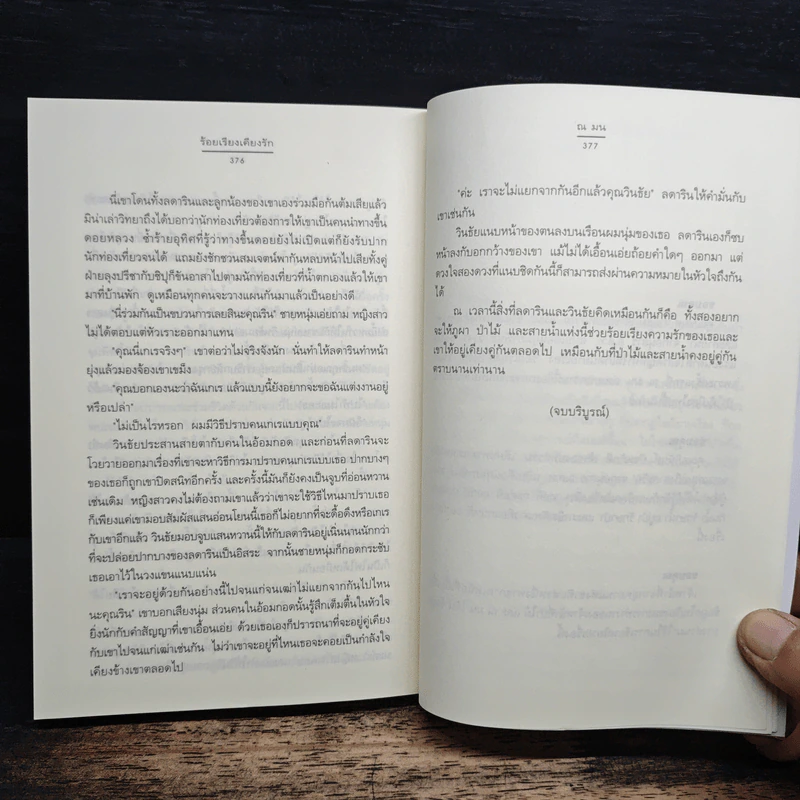 ร้อยเรียงเคียงรัก
376
นี่เขาโดนทั้งลดารินและลูกน้องของเขาเองร่วมมือกันต้มเสียแล้ว
มิน่าเล่าวิทยาถึงได้บอกว่านักท่องเที่ยวต้องการให้เขาเป็นคนนำทางขึ้น
ดอยหลวง ซ้ำร้ายอุทิศที่รู้ว่าทางขึ้นดอยยังไม่เปิดแต่ก็ยังรับปาก
นักท่องเที่ยวจนได้ แถมยังชักชวนสมเจตน์พากันหลบหน้าไปเสียทั้งคู่
ฝ่ายลุงปรีชากับชิปุก็ขันอาสาไปตามนักท่องเที่ยวที่น้ำตกเองแล้วให้เขา
มาที่บ้านพัก ดูเหมือนทุกคนจะวางแผนกันมาแล้วเป็นอย่างดี
"นี่ร่วมกันเป็นขบวนการเลยสินะคุณริน" ชายหนุ่มเอ่ยถาม หญิงสาว
ไม่ได้ตอบแต่หัวเราะออกมาแทน
"คุณนี่เกเรจริงๆ" เขาต่อว่าไม่จริงจังนัก นั่นทำให้ลดารินทำหน้า
ยุ่งแล้วมองจ้องเขาเขม็ง
"คุณบอกเองนะว่าฉันเกเร แล้วแบบนี้ยังอยากจะขอฉันแต่งงานอยู่
หรือเปล่า"
"ไม่เป็นไรหรอก ผมมีวิธีปราบคนเกเรแบบคุณ"
วินชัยประสานสายตากับคนในอ้อมกอด และก่อนที่ลดารินจะ
โวยวายออกมาเรื่องที่เขาจะหาวิธีการมาปราบคนเกเรแบบเธอ ปากบางๆ
ของเธอก็ถูกเขาปิดสนิทอีกครั้ง และครั้งนี้มันก็ยังคงเป็นจูบที่อ่อนหวาน
เช่นเดิม หญิงสาวคงไม่ต้องถามเขาแล้วว่าเขาจะใช้วิธีไหนมาปราบเธอ
ก็เพียงแค่เขามอบสัมผัสแสนอ่อนโยนนี้เธอก็ไม่อยากที่จะดื้อดึงหรือเกเร
กับเขาอีกแล้ว วินชัยมอบจูบแสนหวานนี้ให้กับลดารินอยู่เนิ่นนานนักกว่า
ที่จะปล่อยปากบางของลดารินเป็นอิสระ จากนั้นชายหนุ่มก็กอดกระชับ
เธอเอาไว้ในวงแขนแนบแน่น
"เราจะอยู่ด้วยกันอย่างนี้ไปจนแก่จนเฒ่าไม่แยกจากกันไปไหน
นะคุณริน" เขาบอกเสียงนุ่ม ส่วนคนในอ้อมกอดนั้นรู้สึกเต็มตื้นในหัวใจ
ยิ่งนักกับคำสัญญาที่เขาเอื้อนเอ่ย ด้วยเธอเองก็ปรารถนาที่จะอยู่คู่เคียง
กับเขาไปจนแก่เฒ่าเช่นกัน ไม่ว่าเขาจะอยู่ที่ไหนเธอจะคอยเป็นกำลังใจ
เคียงข้างเขาตลอดไป
ณ มน
377
"ค่ะ เราจะไม่แยกจากกันอีกแล้วคุณวินชัย" ลดารินให้คำมั่นกับ
เขาเช่นกัน
วินชัยแนบหน้าของตนลงบนเรือนผมนุ่มของเธอ ลดารินเองก็ซบ
หน้าลงกับอกกว้างของเขา แม้ไม่ได้เอื้อนเอ่ยถ้อยคำใดๆ ออกมา แต่
ดวงใจสองดวงที่แนบชิดกันนี้ก็สามารถส่งผ่านความหมายในหัวใจถึงกัน
ได้
ณ เวลานี้สิ่งที่ลดารินและวินชัยคิดเหมือนกันก็คือ ทั้งสองอยาก
จะให้ภูผา ป่าไม้ และสายน้ำแห่งนี้ช่วยร้อยเรียงความรักของเธอและ
เขาให้อยู่เคียงคู่กันตลอดไป เหมือนกับที่ป่าไม้และสายน้ำคงอยู่คู่กัน
ตราบนานเท่านาน
(จบบริบูรณ์)